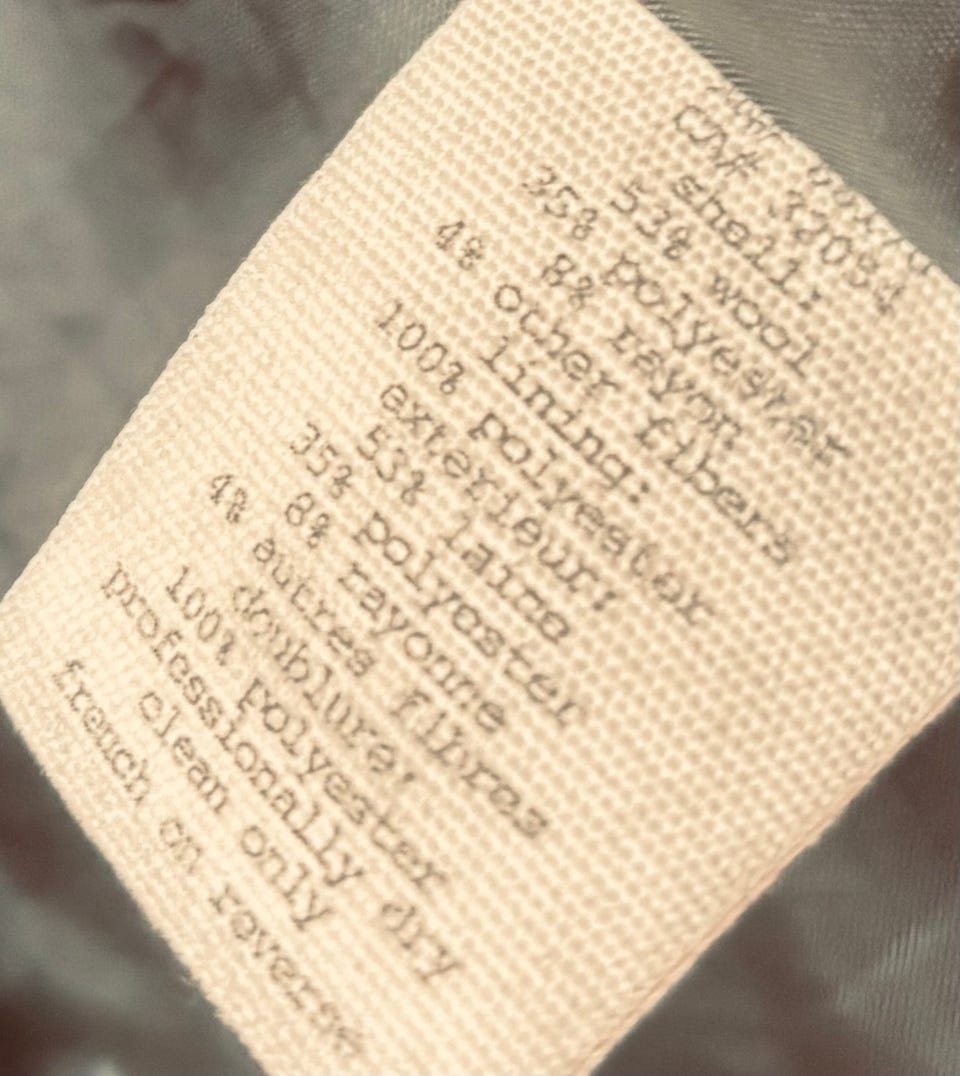 CA# 32054
shell:
53% wool
35% polyester
8% rayon
4% other fibers
lining:
100% polyester
exterieur:
53% laine
35% polyester
8% rayonne
4% autres fibres
doublure:
100% polyester
professionally dry
clean only
french on reverse